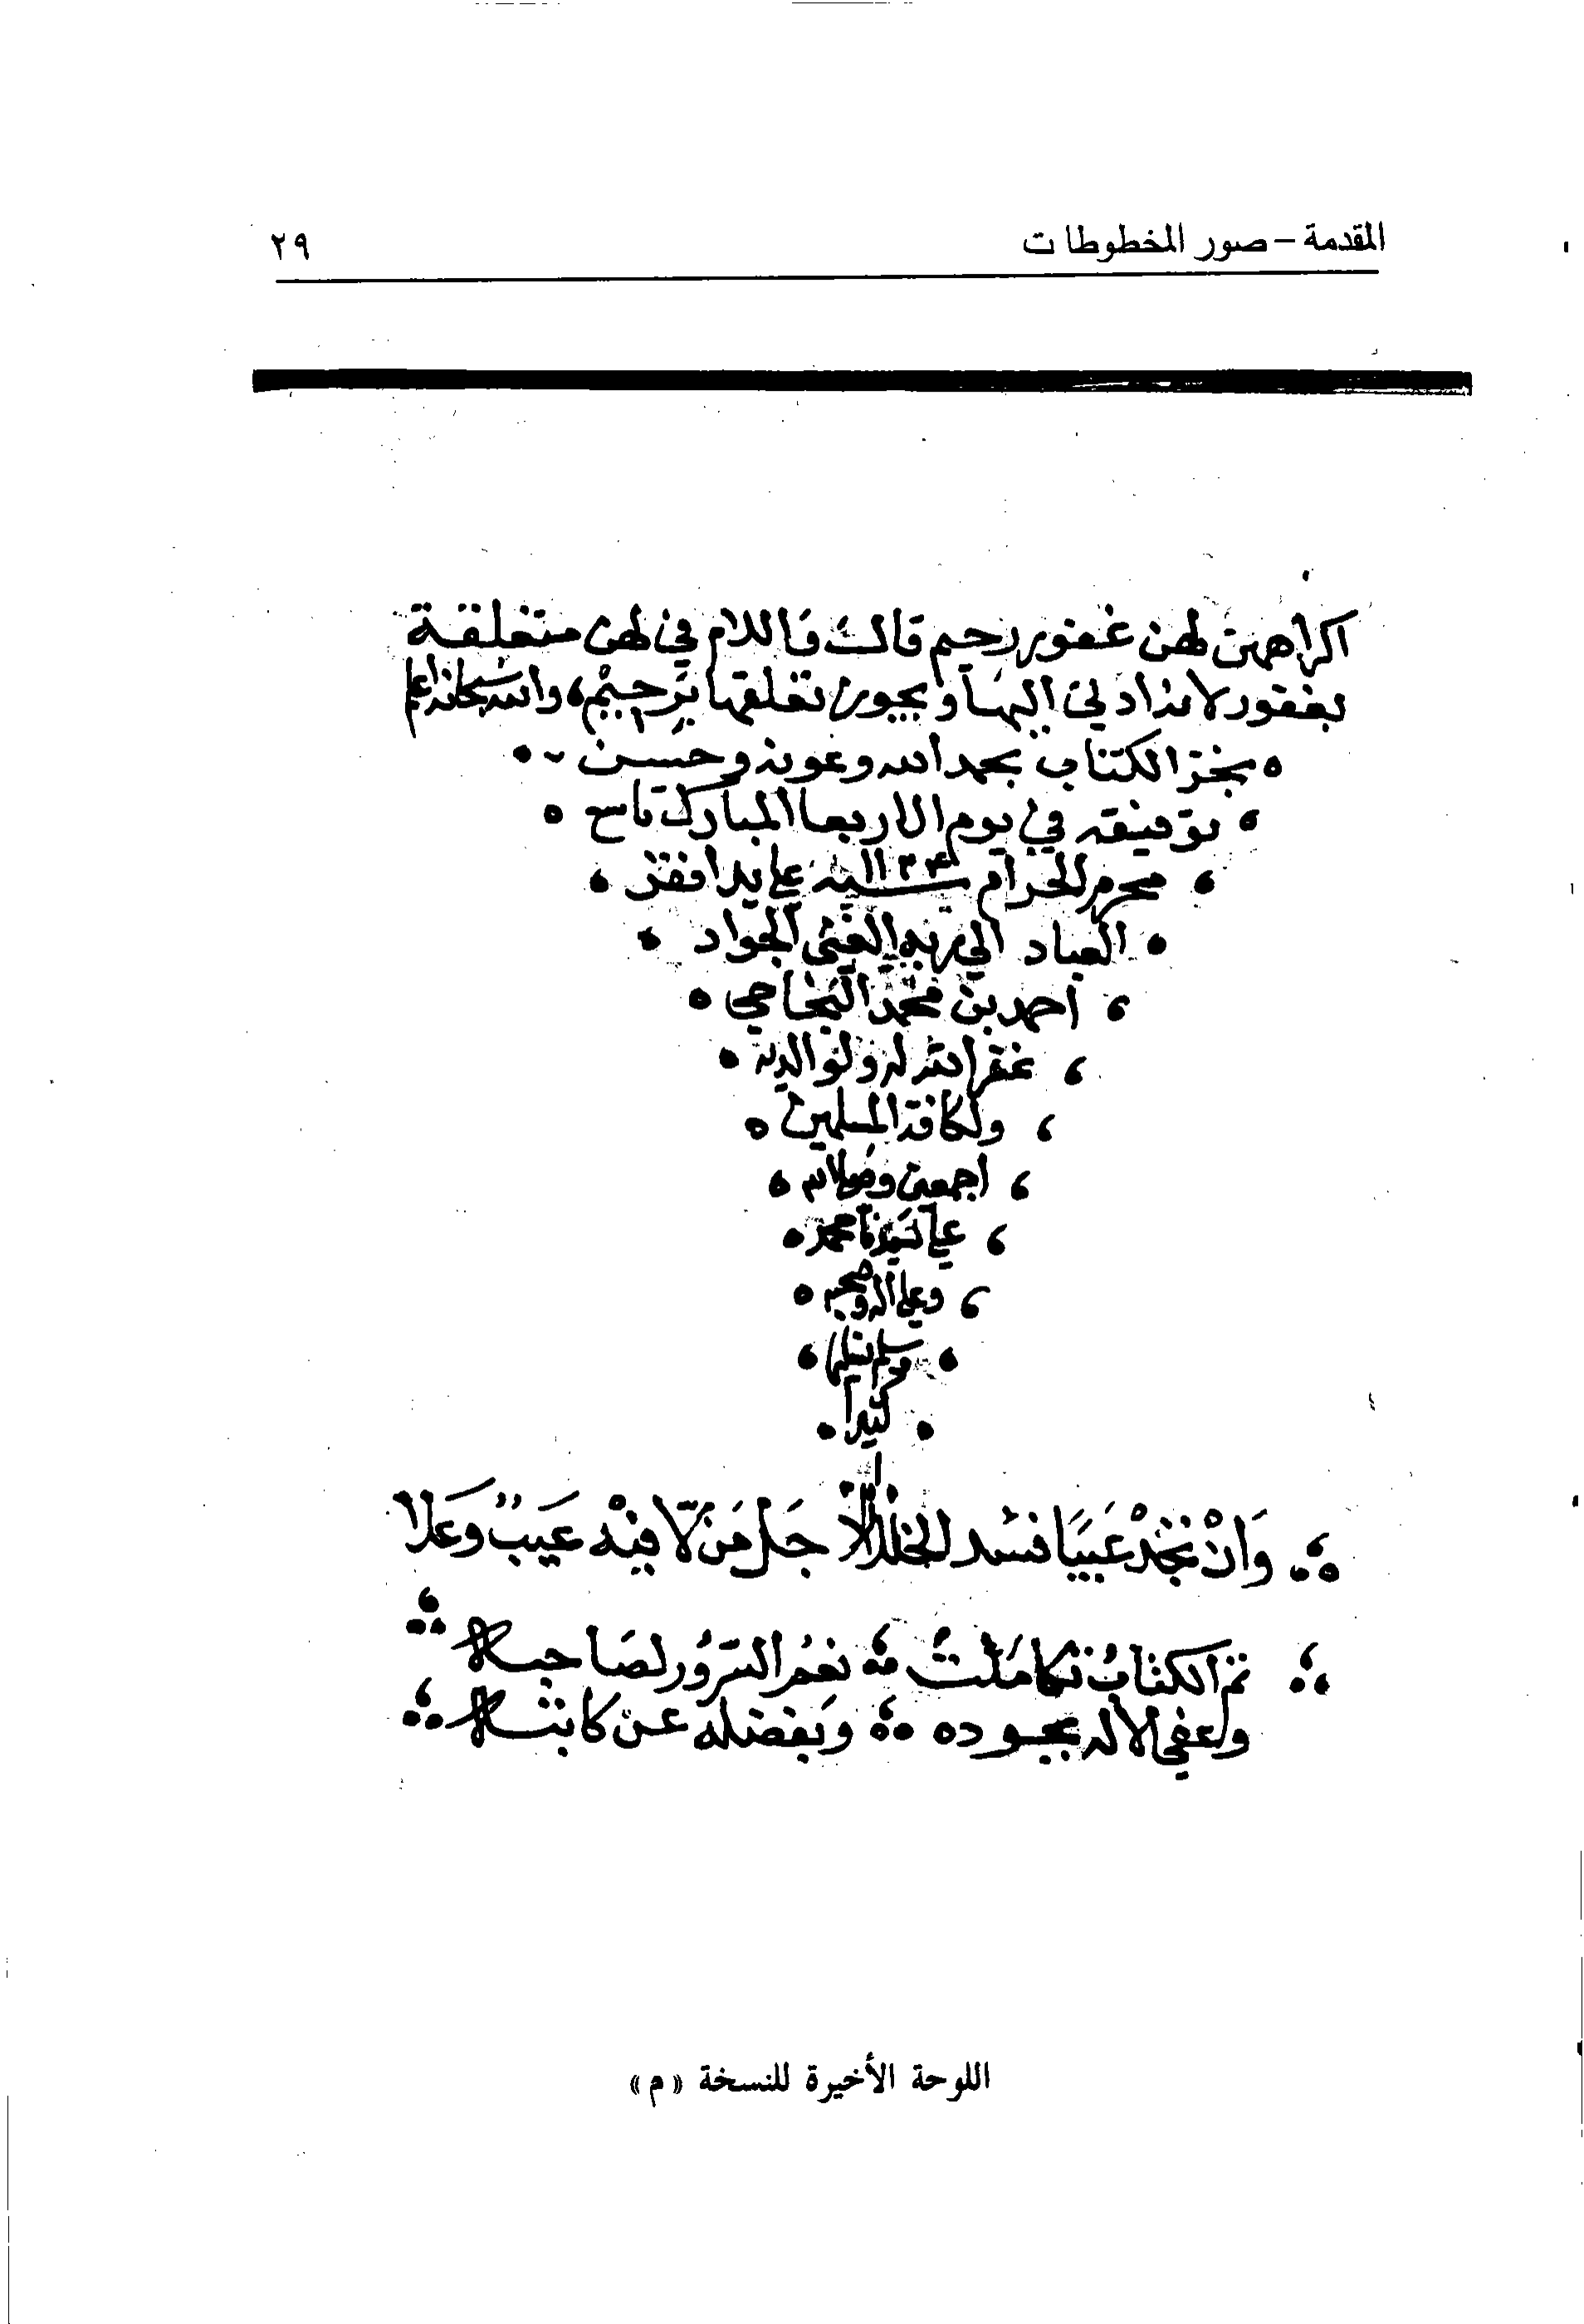 المقدمة – صور المخطوطات ٢٩
اكراههن لهن غفور رحيم قال فاللام في لهن متعلقة
بغفور لانه ادنى اليها ويجوز تعلقها برحيم، والله سبحانه اعلم
نجز الكتاب بحمد الله وعونه وحسن
توفيقه في يوم الاربعا المبارك تاسع
محرم الحرام سنة ١١٣٤ على يد افقر
العباد الى ربه الغني الجواد
احمد بن محمد
غفر الله له ولوالديه
ولكافة المسلمين
اجمعين
على سيدنا محمد
وعلى اله وصحبه
وسلم تسليما
كثيرا
وَانْ تَجِدْ عَيبًا فسُد الخللا جَلَّ مَنْ لَا فِيْهِ عَيبٌ وَعَلَا
تم الكتابُ تكامَلَتْ نعمُ السّرُور لصَاحبه
وعفى الاله بجوده وَبفضله عن كاتبه
اللوحة الأخيرة للنسخة «م»